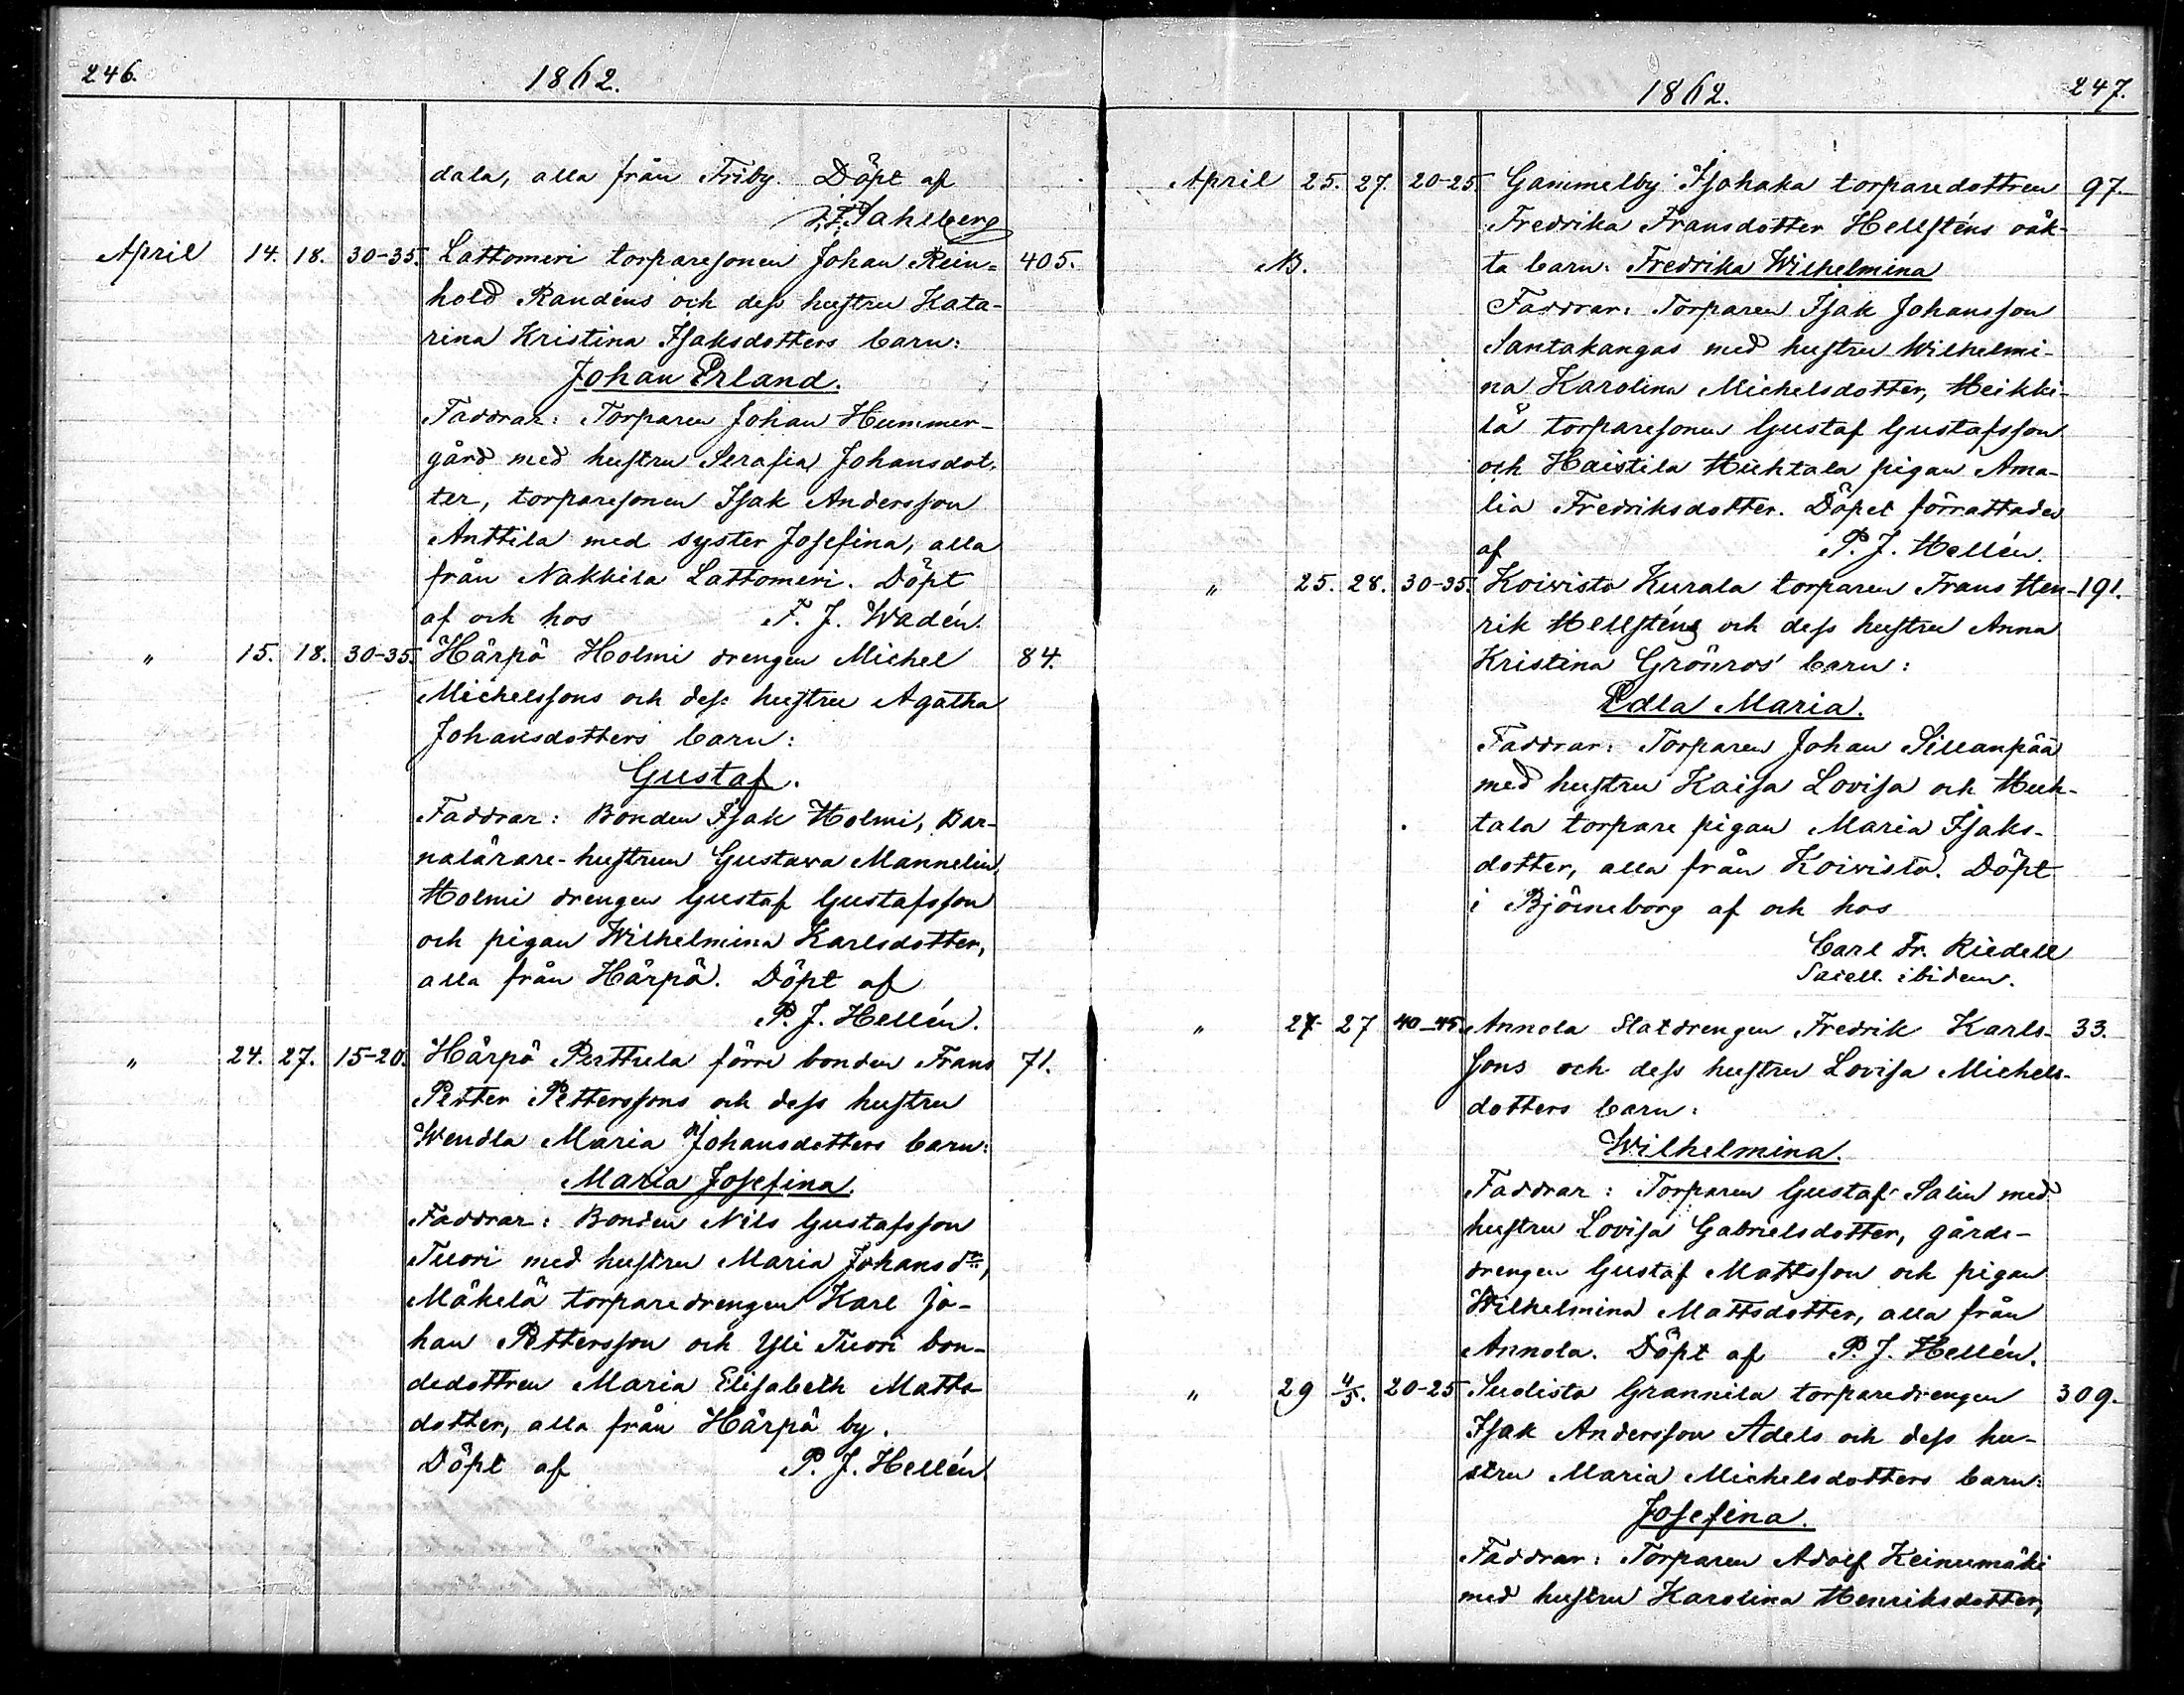 246.
1862.
dala, alla från Friby. Döpt af
Sahlberg
April 14. 18. 30-35. Lattomeri torparesonen Johan Rein- 405.
hold Randéns och dess hustru Kata-
rina Kristina Isaksdotters barn:
Johan Erland.
Faddrar: Torparen Johan Hummer-
gård med hustru Serafia Johansdot-
ter, torparesonen Isak Andersson
Anttila med syster Josefina, alla
från Nakkila Lattomeri. Döpt
af och hos F. J. Wadén.
" 15. 18. 30-35. Härpö Holmi drengen Michel 84.
Michelssons och dess hustru Agatha
Johansdotters barn:
Gustaf.
Faddrar: Bonden Isak Holmi, Bar-
nalärare-hustrun Gustava Mannelin,
Holmi drengen Gustaf Gustafsson
och pigan Wilhelmina Karlsdotter,
alla från Härpö. Döpt af
P. J. Hellén.
" 24. 27. 15-20. Härpö Perttula förre bonden Frans 71.
Petter Petterssons och dess hustru
Wendla Maria Johansdotters barn:
Maria Josefina.
Faddrar: Bonden Nils Gustafsson
Tuori med hustru Maria Johansdr,
Mäkelä torparedrengen Karl Jo-
han Pettersson och Yli Tuori bon-
dedottren Maria Elisabeth Matts-
dotter, alla från Härpö by.
Döpt af P. J. Hellén
1862.
247.
April 25. 27. 20-25. Gammelby Isohaka torparedottren 97.
Fredrika Fransdotter Hellsténs oäk-
NB. ta barn: Fredrika Wilhelmina
Faddrar: Torparen Isak Johansson
Santakangas med hustru Wilhelmi-
na Karolina Michelsdotter, Heikki-
lä torparesonen Gustaf Gustafsson
och Haistila Huhtala pigan Ama-
lia Fredriksdotter. Döpet förrättades
af P. J. Hellén.
" 25. 28. 30-35. Koivisto Kurala torparen Frans Hen- 191.
rik Hellsténs och dess hustru Anna
Kristina Grönros' barn:
Edla Maria.
Faddrar: Torparen Johan Sillanpää
med hustru Kaisa Lovisa och Huh-
tala torpare pigan Maria Isaks-
dotter, alla från Koivisto. Döpt
i Björneborg af och hos
Carl Fr. Riedell
Sacell. ibidem.
" 27. 27 40-45 Annola Statdrengen Fredrik Karls- 33.
sons och dess hustru Lovisa Michels-
dotters barn:
Wilhelmina.
Faddrar: Torparen Gustaf Salin med
hustru Lovisa Gabrielsdotter, gårds-
drengen Gustaf Mattsson och pigan
Wilhelmina Mattsdotter, alla från
Annola. Döpt af P. J. Hellén.
" 29 4/5. 20-25 Suolisto Grannila torparedrengen 309.
Isak Andersson Adels och dess hu-
stru Maria Michelsdotters barn:
Josefina.
Faddrar: Torparen Adolf Keinumäki
med hustru Karolina Henriksdotter,